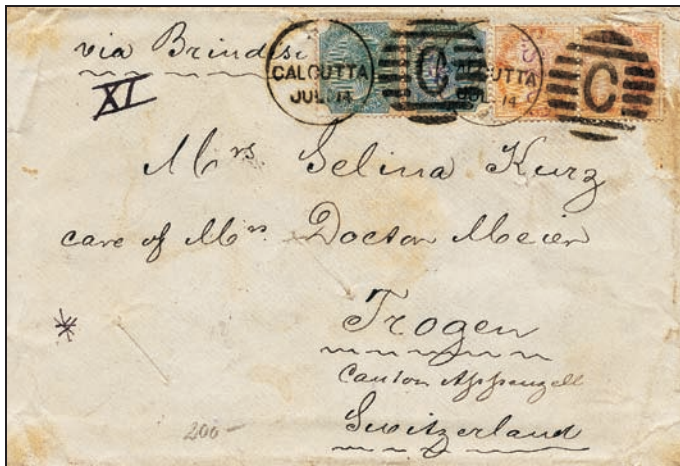 via Brindisi
XI
CALCUTTA
JUL. 14
C
CALCUTTA
JUL. 14
C
Mrs. Selina Kurz
care of Mrs. Doctor Meier
Trogen
Canton Appenzell
Switzerland
200-